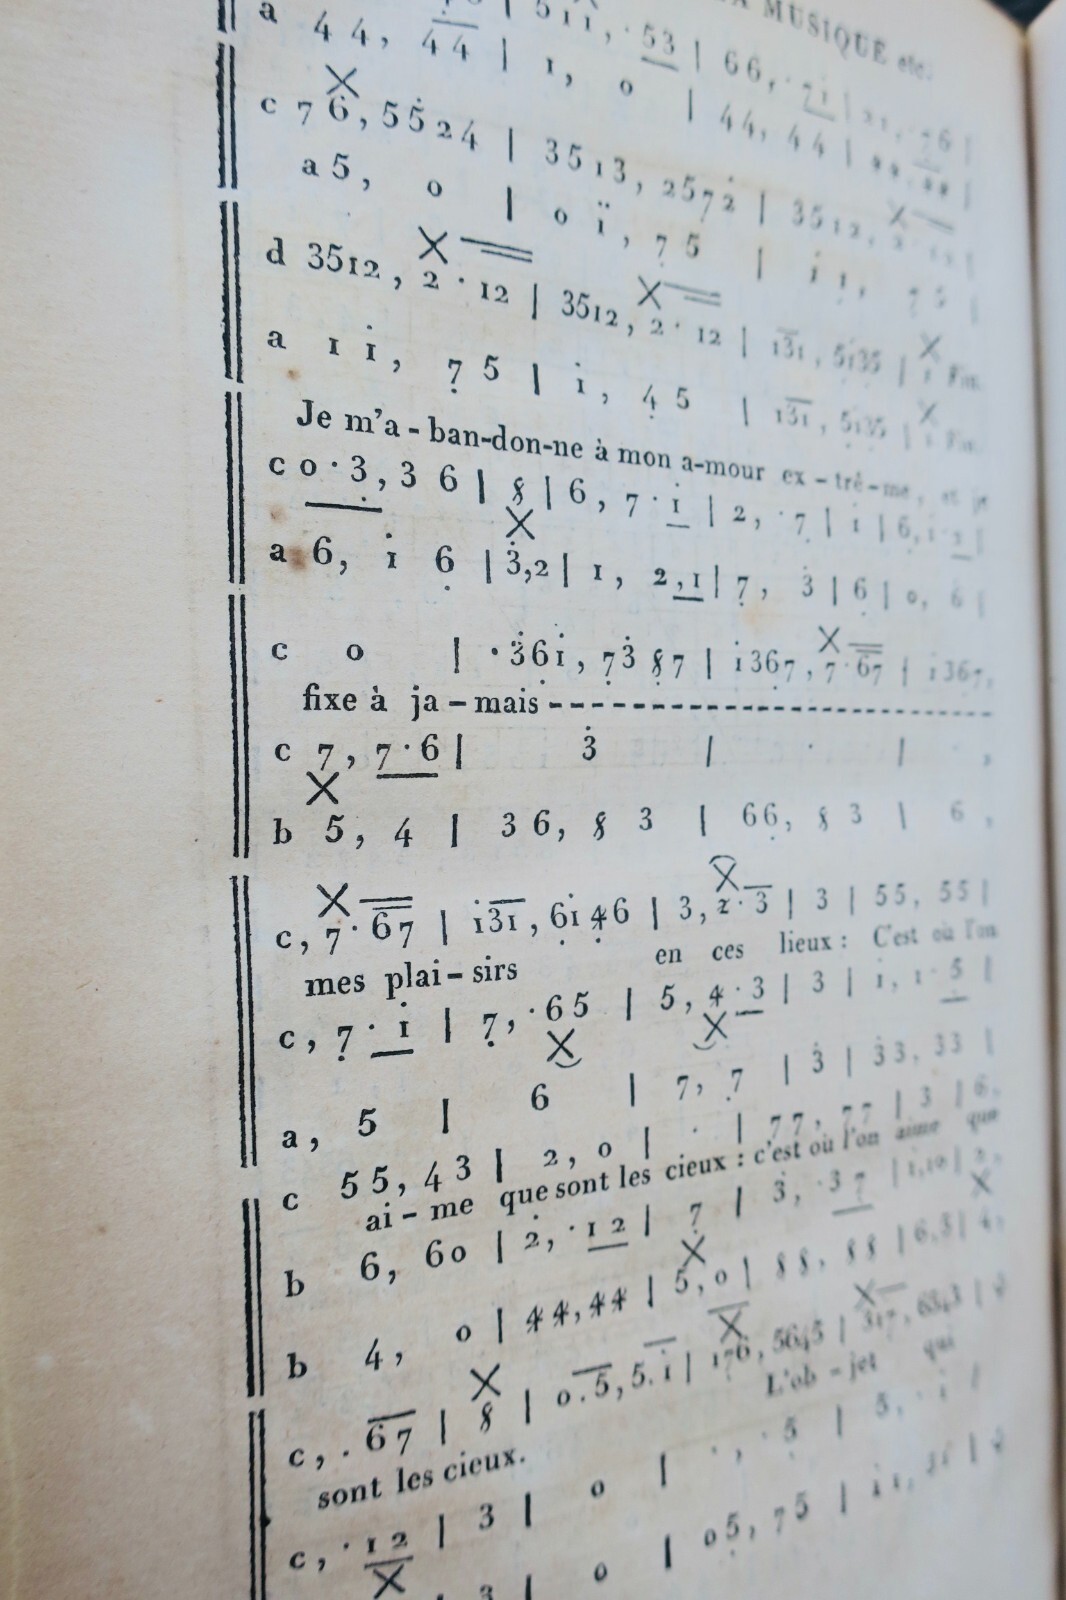 MUSIQUE etc.
a 44, 44 | 1, 0 | 44, 44 |
c 76, 5524 | 3513, 2572 | 3512,
a 5, 0 | 0 ï, 75 | i 1, 75
d 3512, 2·12 | 3512, 2·12 | 131, 5135 | Fin.
a 1 i, 7 5 | i, 4 5 | 131, 5135 | Fin.
Je m'a-ban-don-ne à mon a-mour ex-trê-me, et je
c 0·3, 3 6 | 8 | 6, 7·i | 2, ·7 | i |
a 6, i 6 | 3,2 | 1, 2,1 | 7, 3 | 6 | 0, 6 |
c 0 | ·36i, 73 87 | i367, 7·67 | i367,
fixe à ja-mais
c 7, 7·6 | 3 | · | ·,
b 5, 4 | 36, 8 3 | 66, 8 3 | 6,
c, 7·67 | i31, 6i46 | 3, 2·3 | 3 | 55, 55 |
mes plai-sirs en ces lieux : C'est où l'on
c, 7·i | 7, ·65 | 5, 4·3 | 3 | i, 1·5 |
a, 5 | 6 | 7, 7 | 3 | 33, 33 |
c 55, 43 | 2, 0 | · | 77, 77 | 3 | 6,
ai-me que sont les cieux : c'est où l'on aime que
b 6, 60 | 2, ·12 | 7 | 3, ·37 |
b 4, 0 | 44, 44 | 5, 0 | 88, 88 | 6,5 | 4,
c, ·67 | 8 | 0.5, 5.i | 176, 5645 | 317, 6343 |
sont les cieux. L'ob-jet qui
c, ·12 | 3 | 0 | ·, ·5 | 5, ·i |
3 | 0 | 05, 75 |